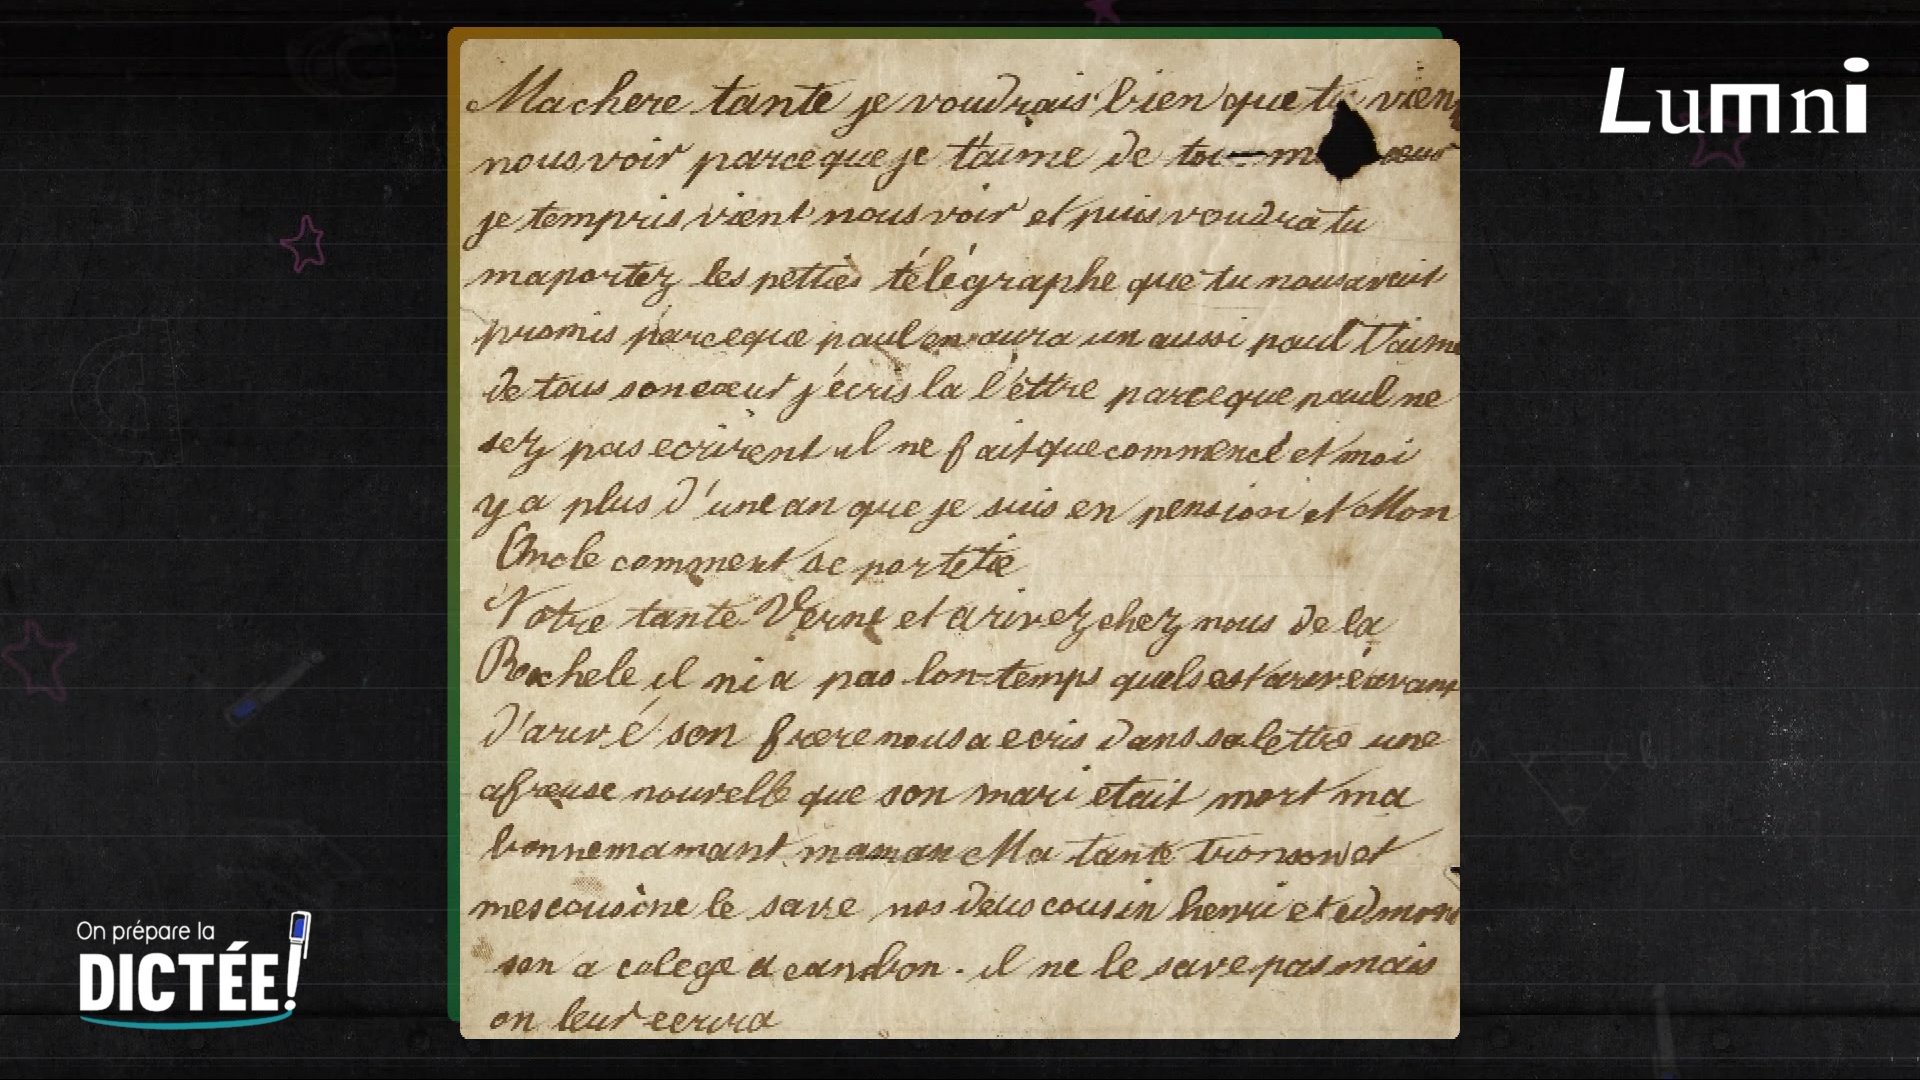 Lumni
Ma chere tante je voudrais bien que tu viens
nous voir parce que je t'aime de tou m cœur
je tempris vient nous voir et puis voudra tu
maportez les petties télégraphe que tu nous aveut
promis parceque paul en aura un aussi paul t'aime
de tous son cœur j'écris la l'éttre parceque paul ne
sez pas ecrirent il ne fait que commencé et moi
y a plus d'une an que je suis en pension et Mon
Oncle comment se portetie
Notre tante Verne et arivez chez nous de la
Rochele il ni a pas lontemps quels est arivé avant
d'arivé son frere nous a ecris dans sa lettre une
afreuse nouvelle que son mari etait mort ma
bonnemamant maman Ma tante tronson et
mes cousine le save nos deus cousin henri et edmond
son a colege a cambon. il ne le save pas mais
on leur ecrira
On prépare la
DICTÉE!